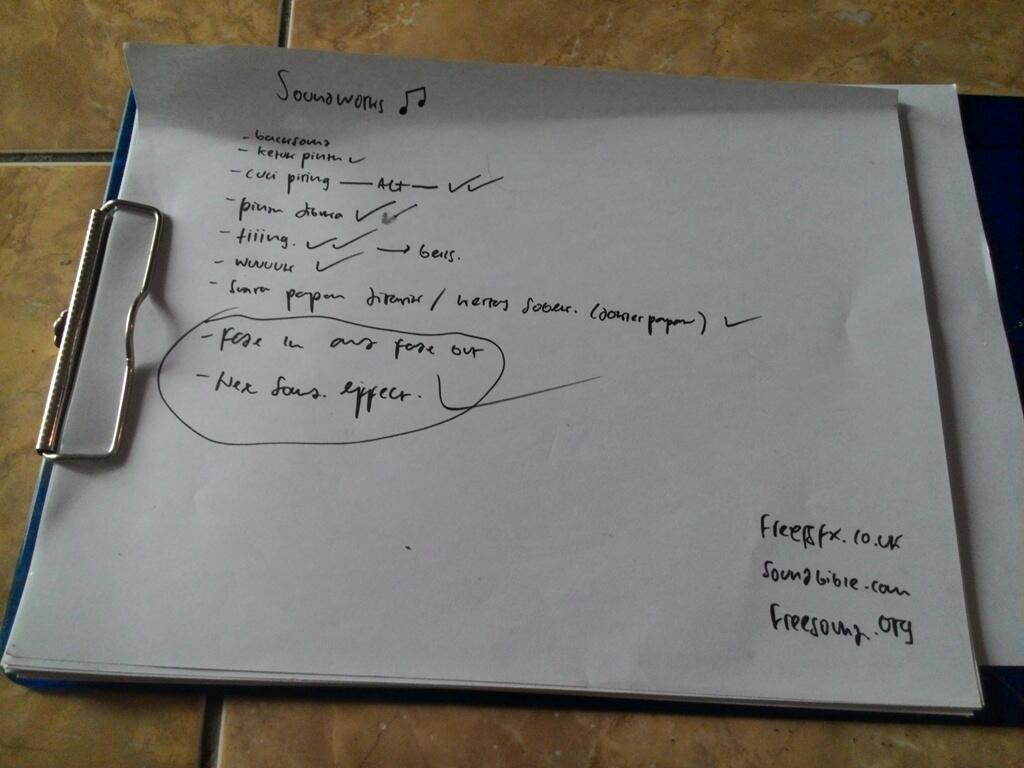 Soundworks
- backsound
- ketuk pintu
- cuci piring — Alt —
- pintu dibuka
- tiiing. → bells.
- wuuuuk
- Suara papan ditarik / kertas sobek. (dorrer papan)
- Fade in and fade out
- Nex Sound. effect.
Freesfx.co.uk
Soundbible.com
Freesound.org